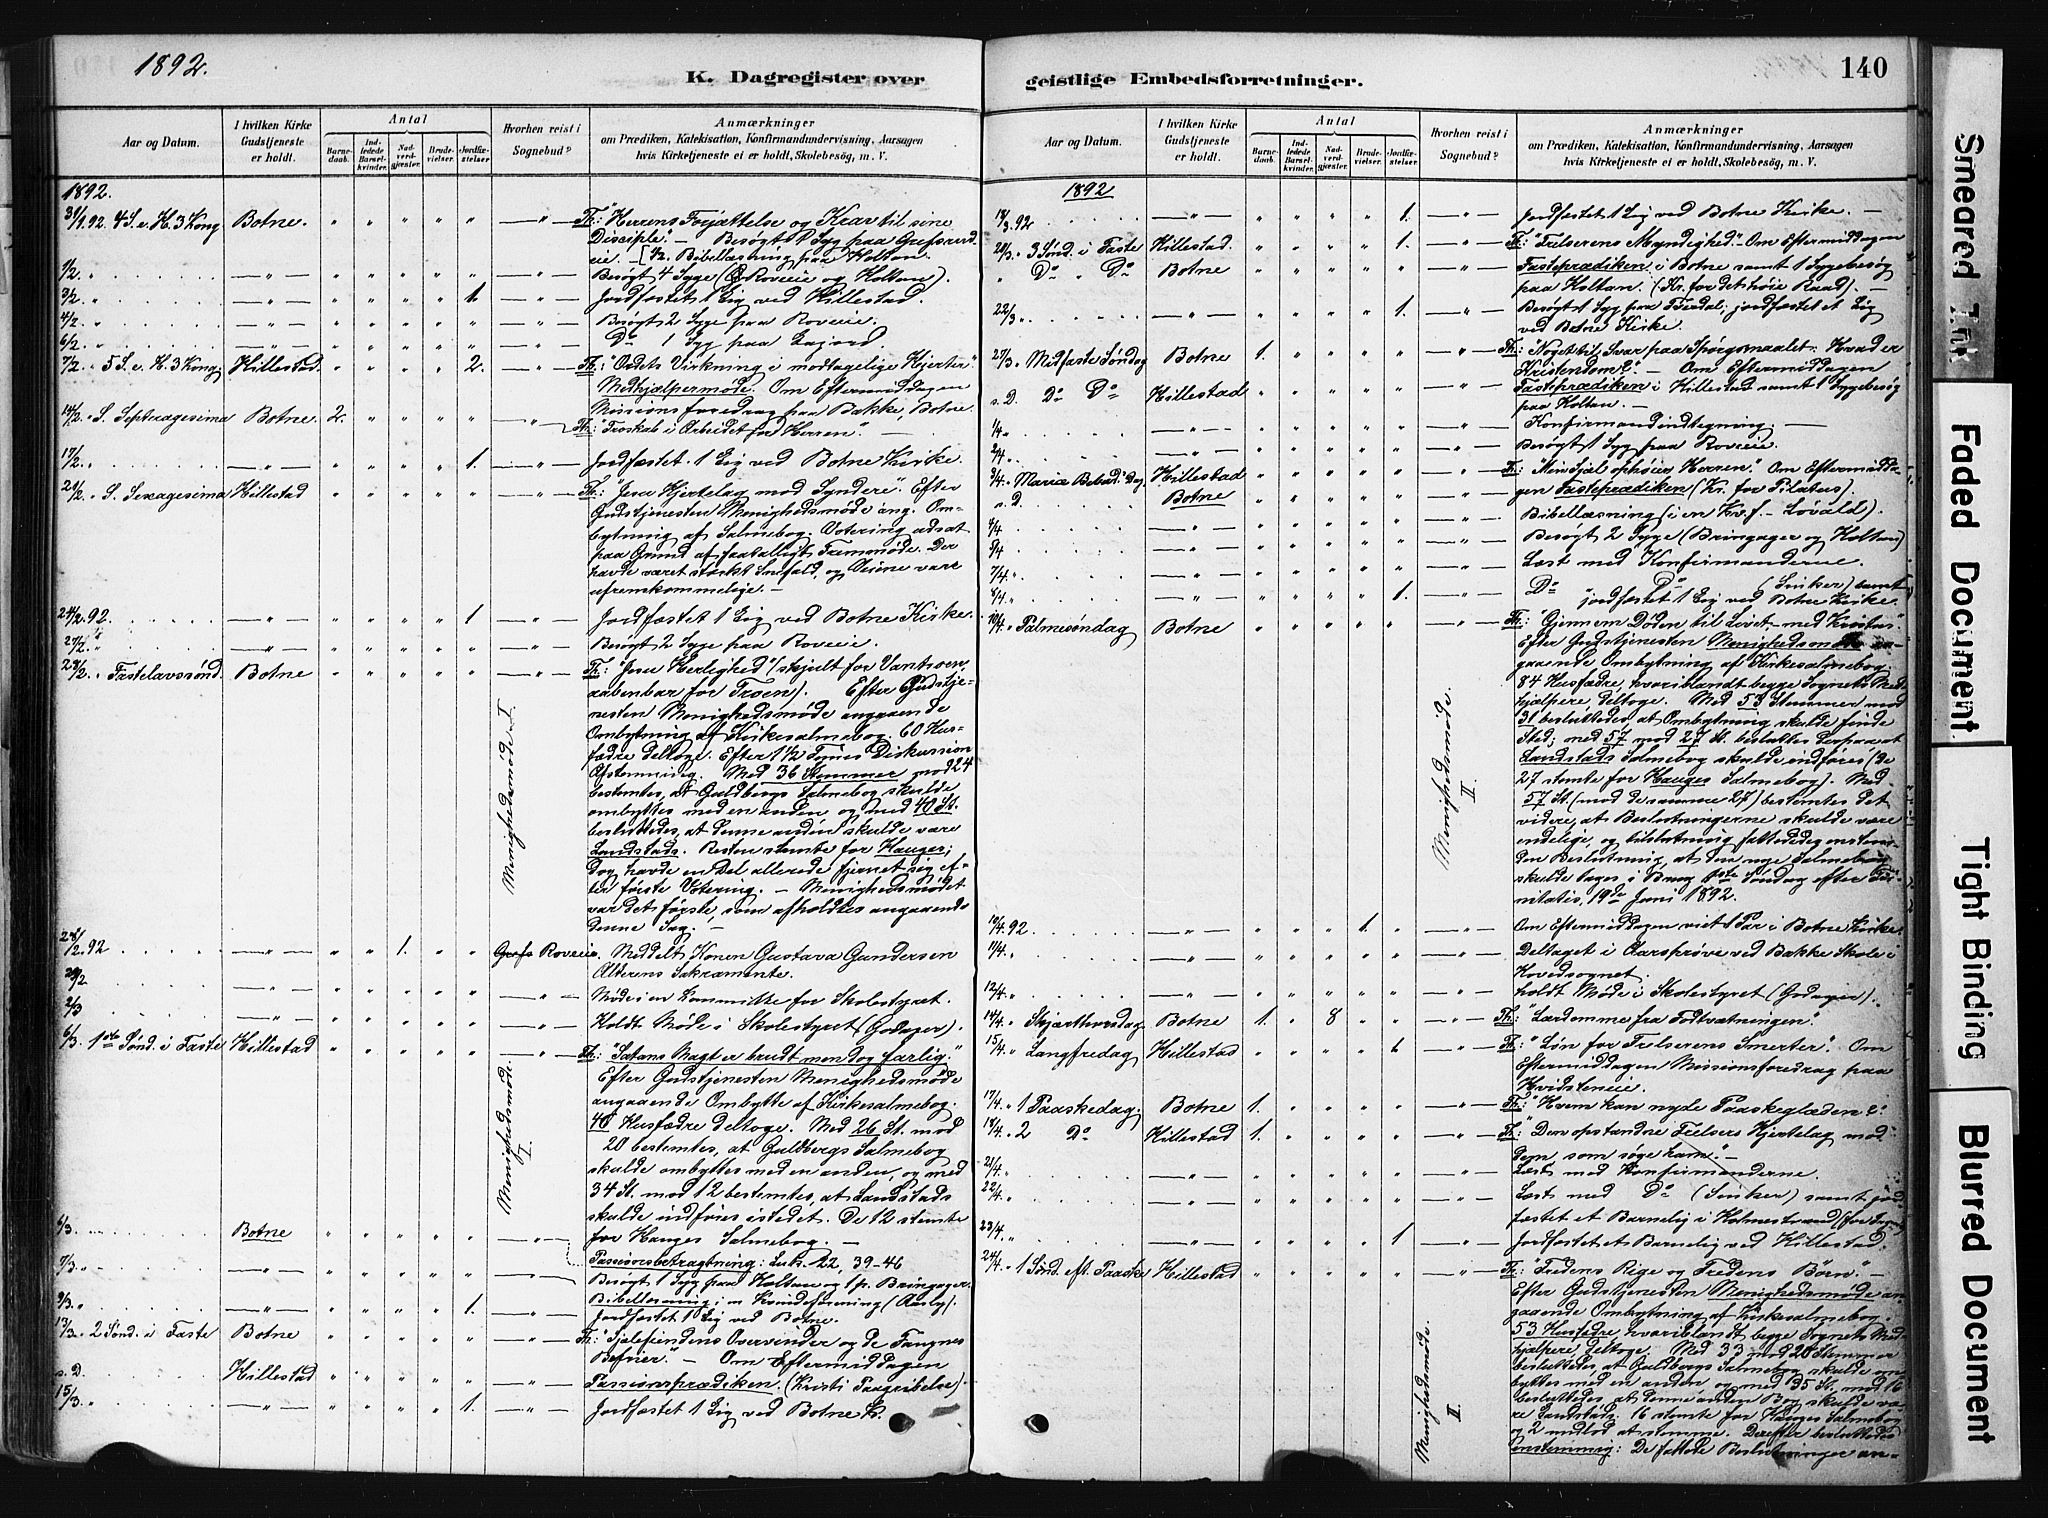 1892.
K. Dagregister over
Aar og Datum.
I hvilken Kirke Gudstjeneste er holdt.
Antal
Barne-daab.
Ind-ledede Barsel-kvinder.
Nad-verd-gjæster.
Brude-vielser.
Jordfæ-stelser.
Hvorhen reist i Sognebud?
Anmærkninger
om Prædiken, Katekisation, Konfirmandundervisning, Aarsagen
hvis Kirketjeneste ei er holdt, Skolebesøg, m. V.
1892.
31/1.92. 4 S. e. H. 3 Kong. Botne. " " " " " —"— Th: "Herrens Forjættelse og Krav til sine
Disciple". — Besøgt 1 Syg paa Grefsrud-
eie. — [1/2. Bibellæsning paa Holtan.
1/2. " —"— " " " " " —"— Besøgt 4 Syge (Roveie og Holtan).
3/2. " —"— " " " " 1. —"— Jordfæstet 1 Lig ved Hillestad.
4/2 " —"— " " " " " —"— Besøgt 2 Syge paa Roveie.
6/2. " —"— " " " " " —"— Do 1 Syg paa
7/2. " 5 S. e. H. 3 Kong. Hillestad. " " " " 2. —"— Th: "Ordets Virkning i modtagelige Hjerter."
Medhjælpermøde. Om Eftermiddagen
Missionsforedrag paa Bakke, Botne.
14/2 " S. Septuagesima Botne. 2. " " " " —"— Th: "Troskab i Arbeidet for Herren". —
17/2. " —"— " " " " 1. —"— Jordfæstet 1 Lig ved Botne Kirke.
21/2. " S. Sexagesima Hillestad " " " " " —"— Th: "Jesu Hjertelag mod Syndere". Efter
Gudstjenesten Menighedsmøde ang. Om-
bytning af Salmebog. Votering udsat
paa Grund af faatalligt Fremmøde. Der
havde været stærkt Snefald, og Veiene vare
ufremkommelige. —
24/2. 92. —"— " " " " 1 —"— Jordfæstet 1 Lig ved Botne Kirke.
27/2. " —"— " " " " " —"— Besøgt 2 Syge paa Roveie.
28/2. " Fastelavssønd. Botne " " " " " —"— Th: "Jesu Herlighed" (skjult for Vantroen,
aabenbar for Troen). Efter Gudstje-
nesten Menighedsmøde angaaende
Ombytning af Kirkesalmebog. 60 Hus-
fædre deltoge. Efter 1 1/2 Times Diskussion
Afstemning. Med 36 Stemmer mod 24
bestemtes, at Guldbergs Salmebog skulde
ombyttes med en anden og med 40 St.
besluttedes, at denne anden skulde være
Landstads. Resten stemte for Hauges;
dog havde en Del allerede fjernet sig ef-
ter første Votering. — Menighedsmødet
var det første, som afholdtes angaaende
denne Sag. —
Menighedsmøde I.
28/2. 92 —"— " " 1. " " Roveie. Meddelt Konen Gustava Gundersen
Alterens Sakramente.
29/2 —"— " " " " " —"— Møde i en Committe for Skolestyret.
2/3 —"— " " " " " —"— Holdt Møde i Skolestyret (Godager).
6/3. 1ste Sønd. i Faste Hillestad " " " " " —"— Th: "Satans Magt er brudt men dog farlig."
Efter Gudstjenesten Menighedsmøde
angaaende Ombytte af Kirkesalmebog.
46 Husfædre deltoge. Med 26 St. mod
20 bestemtes, at Guldbergs Salmebog
skulde ombyttes med en anden, og med
34 St. mod 12 bestemtes, at Landstads
skulde indføres istedet. De 12 stemte
for Hauges Salmebog. —
Menighedsmøde I.
6/3. Botne " " " " " —"— Passionsbetragtning: Luk. 22, 39-46
7/3. " —"— " " " " " —"— Besøgt 1 Syg paa Holtan og 1 p. Bringager.
Bibellæsning i en Kvindeforening (Aarby).
9/3. " —"— " " " " 1. —"— Jordfæstet 1 Lig ved Botne.
13/3. " 2 Sønd. i Faste Botne " " " " " —"— Th: "Sjælefiendens Overvinder og de Fangnes
Befrier." — Om Eftermiddagen
s. D. Hillestad " " " " " —"— Passionsprædiken. (Kristi Paagribelse).
15/3. " —"— " " " " 1. —"— Jordfæstet 1 Lig ved Botne K.
geistlige Embedsforretninger.
140
Aar og Datum.
I hvilken Kirke Gudstjeneste er holdt.
Antal
Barne-daab.
Ind-ledede Barsel-kvinder.
Nad-verd-gjæster.
Brude-vielser.
Jordfæ-stelser.
Hvorhen reist i Sognebud?
Anmærkninger
om Prædiken, Katekisation, Konfirmandundervisning, Aarsagen
hvis Kirketjeneste ei er holdt, Skolebesøg, m. V.
1892
18/3. 92 —"— " " " " 1. —"— Jordfæstet 1 Lig ved Botne Kirke. —
20/3. " 3 Sønd. i Faste Hillestad. " " " " 1. —"— Th: "Frelserens Myndighed". Om Eftermiddagen
" Do " Do Botne " " " " " —"— Fasteprædiken i Botne samt 1 Sygebesøg
paa Holtan. (Kr. for det høie Raad). —
22/3 " —"— " " " " 1. —"— Besøgt 1 Syg paa jordfæstet et Lig
ved Botne Kirke.
27/3. " Midfaste Søndag Botne 1. " " " " —"— Th: "Noget til Svar paa Spørgsmaalet: Hvad er
Kristendom?" — Om Eftermiddagen
s. D. Do Do Hillestad " " " " " —"— Fasteprædiken i Hillestad samt 1 Sygebesøg
paa Holtan. —
1/4 " —"— " " " " " —"— Konfirmandindtegning. —
2/4 " —"— " " " " " —"— Besøgt 1 Syg paa Roveie.
3/4. " Mariæ Bebud. Dag Hillestad " " " " " —"— Th: "Min Sjæl ophøier Herren." Om Eftermidda-
s. D. Botne " " " " " —"— gen Fasteprædiken (Kr. for Pilatus).
4/4 " —"— " " " " " —"— Bibellæsning (i en Kv.f. — Lovald).
5/4 " —"— " " " " " —"— Besøgt 2 Syge (Bringager og Holtan)
7/4. " —"— " " " " " —"— Læst med Konfirmanderne.
8/4. " —"— " " " " 1. —"— Do Do (Sinker) samt
jordfæstet 1 Lig ved Botne Kirke.
10/4. " Palmesøndag Botne " " " " " —"— Th: "Gjennem Døden til Livet — med Kristus".
Efter Gudstjenesten Menighedsmøde an-
gaaende Ombytning af Kirkesalmebog.
84 Husfædre, hvoriblandt begge Sognets Med-
hjælpere, deltoge. Med 53 Stemmer mod
31 besluttedes, at Ombytning skulde finde
Sted; med 57 mod 27 St. besluttes derpaa at
Landstads Salmebog skulde indføres (de
27 stemte for Hauges Salmebog). Med
57 St. (mod de samme 27) bestemtes det
videre, at Beslutningerne skulde være
endelige, og tilslutning fattedes enstem-
den Beslutning, at den nye Salmebog
skulde tages i Brug 1ste Søndag efter Tri-
nitatis, 19de Juni 1892.
Menighedsmøde. II.
10/4. 92. —"— " " " 1. " —"— Om Eftermiddagen viet 1 Par i Botne Kirke.
11/4. " —"— " " " " " —"— Deltaget i Aarsprøve ved Bakke Skole i
Hovedsognet.
12/4. " —"— " " " " " —"— holdt Møde i Skolestyret (Godager).
14/4. " Skjærthorsdag Botne 1. " 8 " " —"— Th: "Lærdomme fra Fodtvætningen".
15/4. " Langfredag Hillestad " " " " —"— Th: "Løn for Frelserens Smerter". Om
Eftermiddagen Missionsforedrag paa
Hvidsteneie.
17/4. " 1 Paaskedag. Botne 1. " " " " —"— Th: "Hvem kan nyde Paaskeglæden?"
18/4. " 2 Do Hillestad 1. " " " " —"— Th: "Den opstandne Frelsers Hjertelag mod
dem, som søge ham". —
21/4. " —"— " " " " " —"— Læst med Konfirmanderne.
22/4. " —"— " " " " " —"— Læst med Do (Sinker) samt jord-
fæstet et Barnelig i Holmestrand
23/4. " —"— " " " " 1 —"— Jordfæstet et Barnelig ved Hillestad.
24/4. " 1 Sønd. eft. Paaske Hillestad " " " " " —"— Th: "Fredens Rige og Fredens Børn". —
Efter Gudstjenesten Menighedsmøde an-
gaaende Ombytning af Kirkesalmebog.
53 Husfædre, hvoriblandt begge Sognets Med-
hjælpere, deltoge. Med 33 mod 20 Stemmer
besluttedes, at Guldbergs Salmebog skulde om-
byttes med en anden og med 35 St. mod 16
besluttedes, at denne anden Bog skulde væ-
re Landstads. 16 stemte for Hauges Salmebog
og 2 undlod at stemme. Derefter besluttedes
enstemmig: De fattede Beslutninger an-
Menighedsmøde. II.
Smeared Ink
Faded Document
Tight Binding
Blurred Document